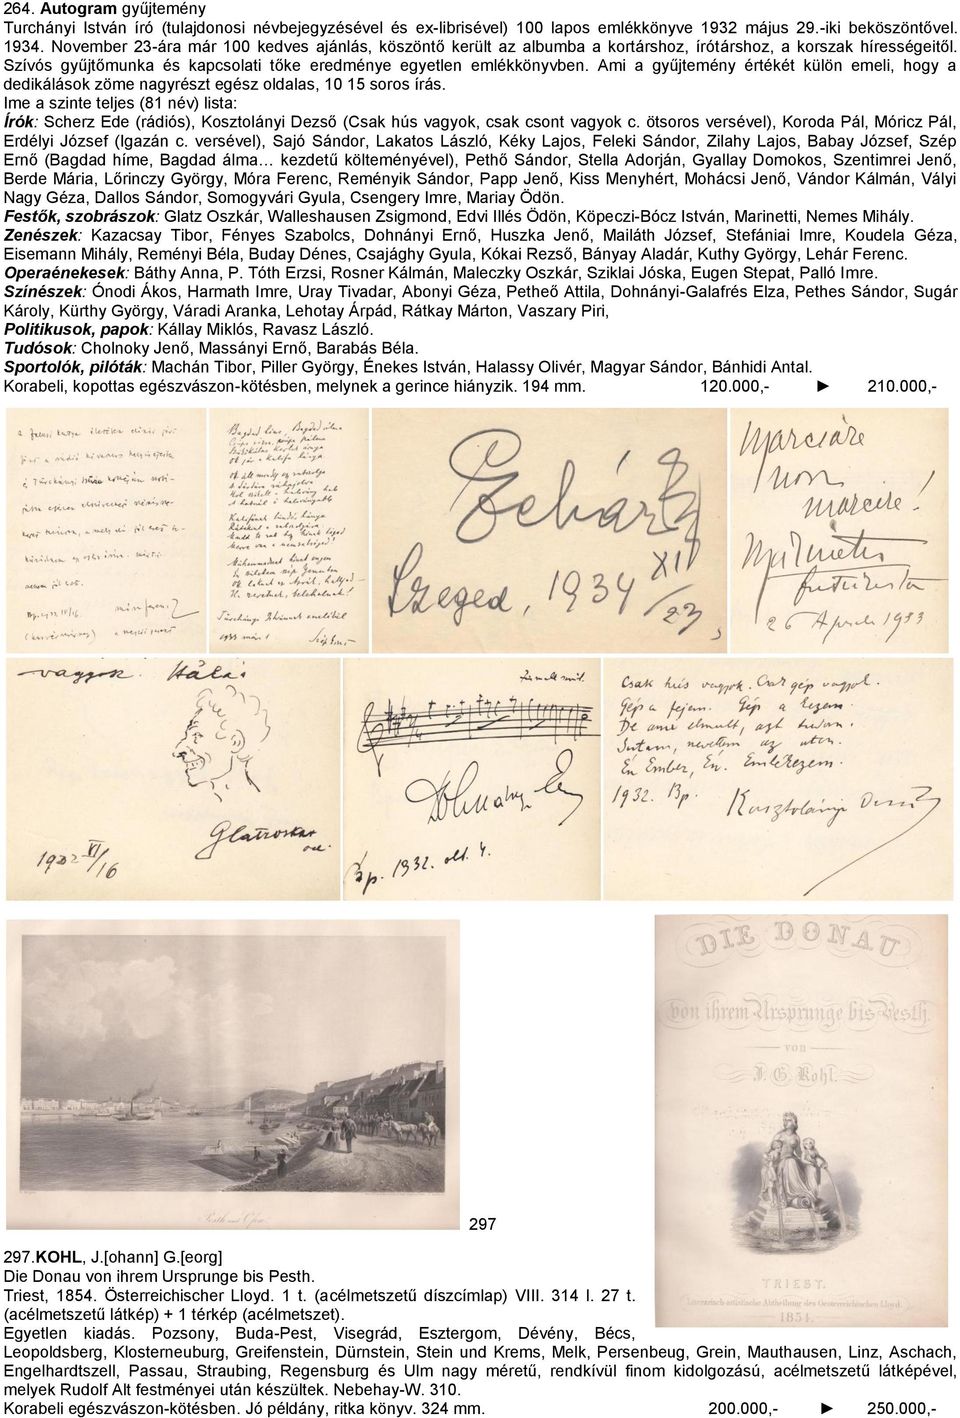 264. Autogram gyűjtemény
Turchányi István író (tulajdonosi névbejegyzésével és ex-librisével) 100 lapos emlékkönyve 1932 május 29.-iki beköszöntővel.
1934. November 23-ára már 100 kedves ajánlás, köszöntő került az albumba a kortárshoz, írótárshoz, a korszak hírességeitől.
Szívós gyűjtőmunka és kapcsolati tőke eredménye egyetlen emlékkönyvben. Ami a gyűjtemény értékét külön emeli, hogy a
dedikálások zöme nagyrészt egész oldalas, 10 15 soros írás.
Ime a szinte teljes (81 név) lista:
Írók: Scherz Ede (rádiós), Kosztolányi Dezső (Csak hús vagyok, csak csont vagyok c. ötsoros versével), Koroda Pál, Móricz Pál,
Erdélyi József (Igazán c. versével), Sajó Sándor, Lakatos László, Kéky Lajos, Feleki Sándor, Zilahy Lajos, Babay József, Szép
Ernő (Bagdad híme, Bagdad álma… kezdetű költeményével), Pethő Sándor, Stella Adorján, Gyallay Domokos, Szentimrei Jenő,
Berde Mária, Lőrinczy György, Móra Ferenc, Reményik Sándor, Papp Jenő, Kiss Menyhért, Mohácsi Jenő, Vándor Kálmán, Vályi
Nagy Géza, Dallos Sándor, Somogyvári Gyula, Csengery Imre, Mariay Ödön.
Festők, szobrászok: Glatz Oszkár, Walleshausen Zsigmond, Edvi Illés Ödön, Köpeczi-Bócz István, Marinetti, Nemes Mihály.
Zenészek: Kazacsay Tibor, Fényes Szabolcs, Dohnányi Ernő, Huszka Jenő, Mailáth József, Stefániai Imre, Koudela Géza,
Eisemann Mihály, Reményi Béla, Buday Dénes, Csajághy Gyula, Kókai Rezső, Bányay Aladár, Kuthy György, Lehár Ferenc.
Operaénekesek: Báthy Anna, P. Tóth Erzsi, Rosner Kálmán, Maleczky Oszkár, Sziklai Jóska, Eugen Stepat, Palló Imre.
Színészek: Ónodi Ákos, Harmath Imre, Uray Tivadar, Abonyi Géza, Petheő Attila, Dohnányi-Galafrés Elza, Pethes Sándor, Sugár
Károly, Kürthy György, Váradi Aranka, Lehotay Árpád, Rátkay Márton, Vaszary Piri,
Politikusok, papok: Kállay Miklós, Ravasz László.
Tudósok: Cholnoky Jenő, Massányi Ernő, Barabás Béla.
Sportolók, pilóták: Machán Tibor, Piller György, Énekes István, Halassy Olivér, Magyar Sándor, Bánhidi Antal.
Korabeli, kopottas egészvászon-kötésben, melynek a gerince hiányzik. 194 mm. 120.000,- ► 210.000,-
Bagdad híme, Bagdad álma
Lehár
Szeged, 1934 XII/23,
Marciare
non
marcire!
futurista
26 Aprile 1933
vagyok. Hálás
Glatz Oszkár
1932 VI/16
Bp. 1932. okt. 4.
Csak hús vagyok. Csak gép vagyok.
Gép a fejem. Gép a kezem.
De ami elmult, azt tudom.
Én Ember, Én. Emlékezem.
1932. Bp. Kosztolányi Dezső
DIE DONAU
von ihrem Ursprunge bis Pesth.
VON
J. G. Kohl.
TRIEST.
Literarisch-artistische Abtheilung des Oesterreichischen Lloyd.
1854.
Pesth und Ofen.
297
297.KOHL, J.[ohann] G.[eorg]
Die Donau von ihrem Ursprunge bis Pesth.
Triest, 1854. Österreichischer Lloyd. 1 t. (acélmetszetű díszcímlap) VIII. 314 l. 27 t.
(acélmetszetű látkép) + 1 térkép (acélmetszet).
Egyetlen kiadás. Pozsony, Buda-Pest, Visegrád, Esztergom, Dévény, Bécs,
Leopoldsberg, Klosterneuburg, Greifenstein, Dürnstein, Stein und Krems, Melk, Persenbeug, Grein, Mauthausen, Linz, Aschach,
Engelhardtszell, Passau, Straubing, Regensburg és Ulm nagy méretű, rendkívül finom kidolgozású, acélmetszetű látképével,
melyek Rudolf Alt festményei után készültek. Nebehay-W. 310.
Korabeli egészvászon-kötésben. Jó példány, ritka könyv. 324 mm. 200.000,- ► 250.000,-